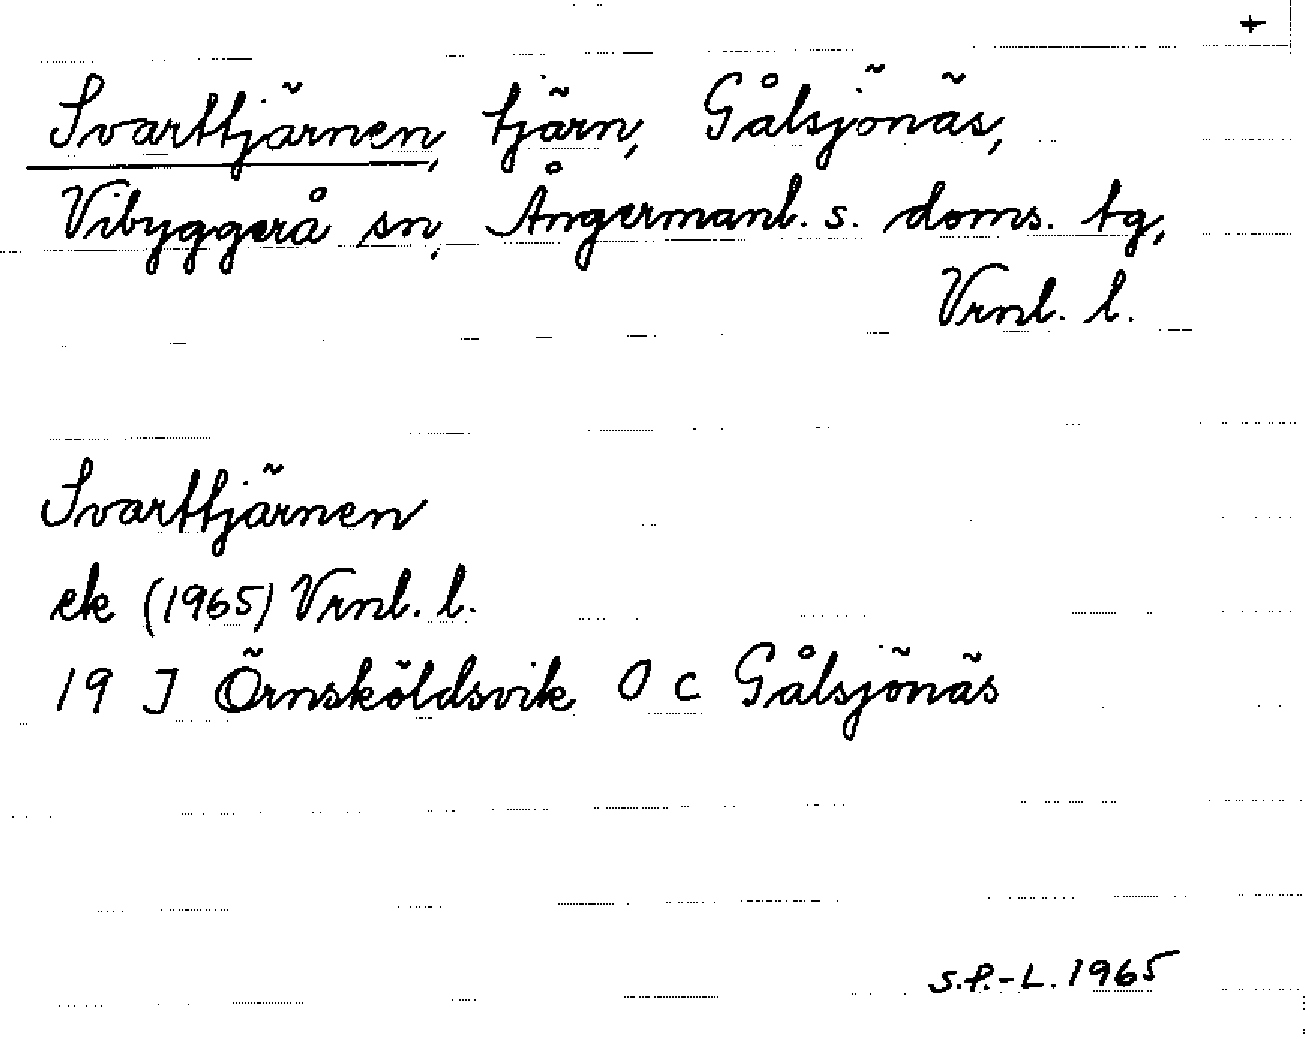 +
Svarttjärnen, tjärn, Gålsjönäs,
Vibyggerå sn, Ångermanl. s. doms. tg,
Vrnl. l.
Svarttjärnen
ek (1965) Vrnl. l.
19 J Örnsköldsvik O c Gålsjönäs
S.P.-L. 1965